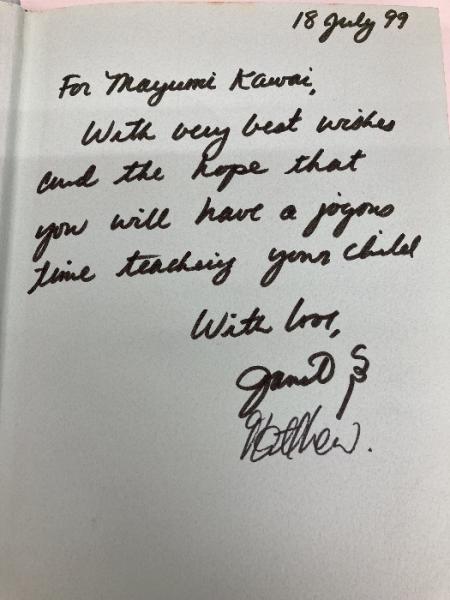 18 July 99
For Mayumi Kawai,
With very best wishes
and the hope that
you will have a joyous
time teaching your child
With love,
Janet &
Matthew.